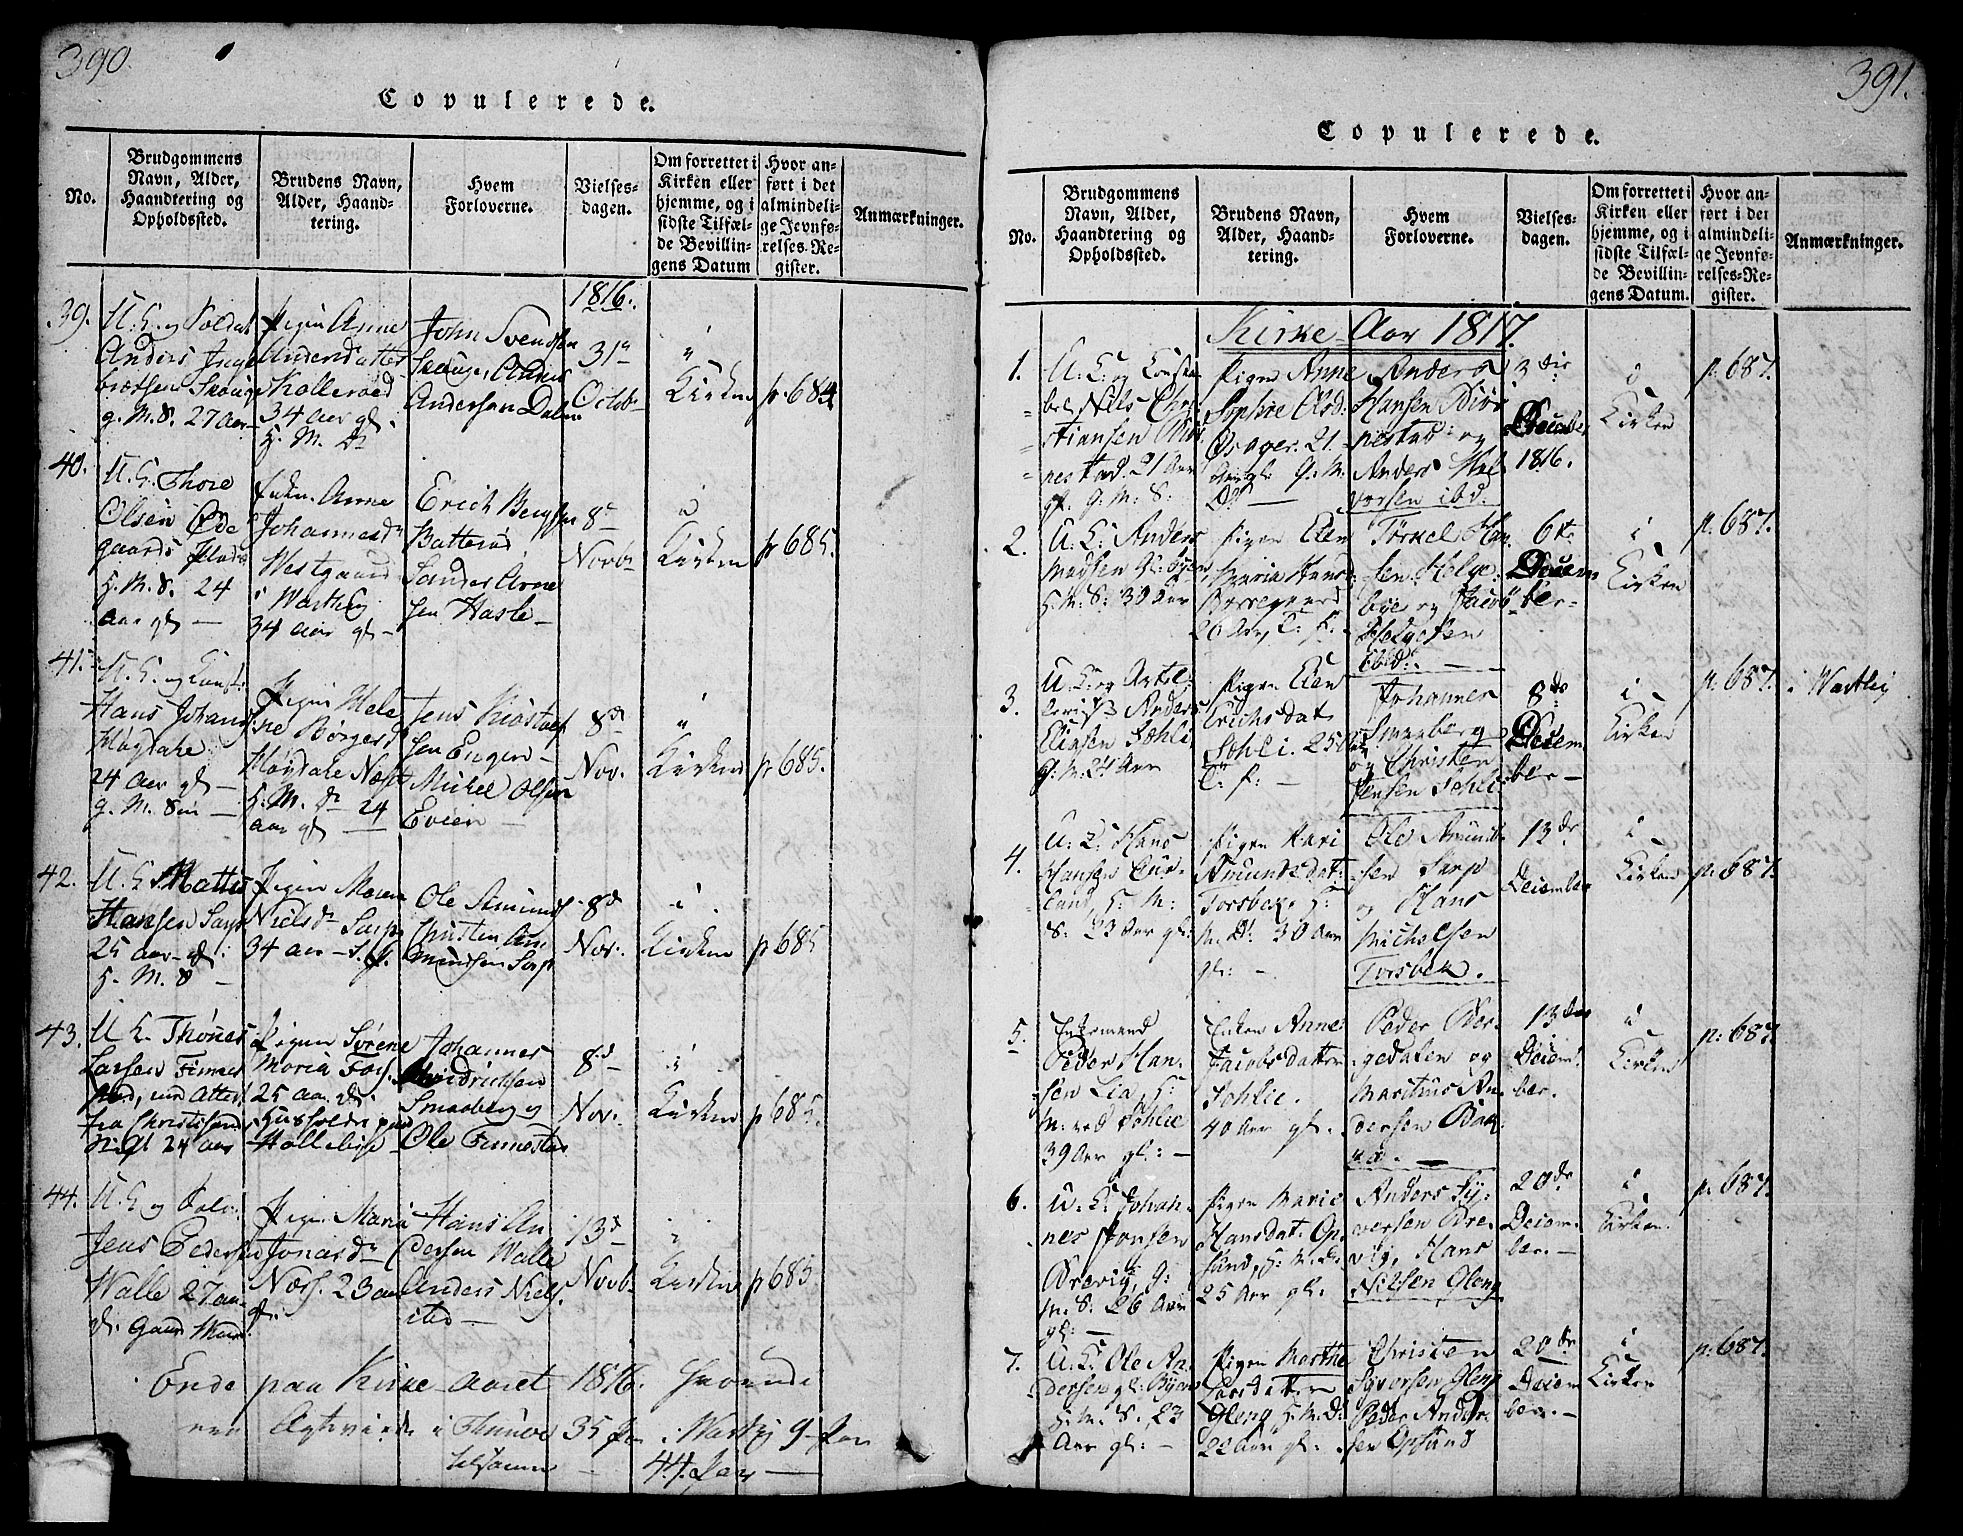 390.
Copulerede.
No.
Brudgommens
Navn, Alder,
Haandtering og
Opholdssted.
Brudens Navn,
Alder, Haand-
tering.
Hvem
Forloverne.
Vielses-
dagen.
Om forrettet i
Kirken eller
hjemme, og i
sidste Tilfæl-
de Bevillin-
gens Datum
Hvor an-
ført i det
almindeli-
ge Jevnfø-
relses-Re-
gister.
Anmærkninger.
1816.
39.
U. C. og Soldat
Anders
g. M. S. 27 Aar
Pigen Anne
Andersdatter
Kollerød
34 Aar gl.
H. M. Dr
John Svendsen
Skouge, Anders
Andersen Dalen
31te
Octob.
i
Kirken
p 684
40.
U. C. Thore
Olsen Øde
gaards Plads
H. M. S. 24
aar gl —
Enken Anne
Johannesdr
Westgaard
i Warteig
34 aar gl —
Erich
Batterød
Sander Arne
sen Hasle —
8de
Novbr
i
Kirken
p 685.
41.
U. C. og Const:
Hans Johans
Høgdale
24 aar gl —
g. M. Søn —
Pigen Hele
ne Børgesd
Høgdale
H. M. Dr 24
aar gl —
Jens
sen Engen —
Michel Olsen
8d
Nov.
i
Kirken
p 685.
42.
U. C. Mattis
Hansen Sarp
25 aar gl.
H. M. S —
Pigen Maren
Nielsdr Sarp
34 aar —
Ole Amunds
Christen Am
mundsen Sarp
8d
Nov.
i
Kirken
p 685
43.
U. C. Thønes
Larsen
fra Christian
24 aar
Pigen Sørene
Maria
25 aar gl.
Johannes
Hendrichsen
Smaaberg og
Ole Finnestad
8d
Nov.
i
Kirken
p 685.
44.
U. C og Soldat
Jens Pedersen
Walle 27 aar
gl. Gaard Mand
Pigen Maria
Jonasdr
Næss. 23 aar
gl.
Hans An
dersen Walle
Anders Niels
13d
Novb
i
Kirken
p 685
Ende paa Kirke-aaret 1816.
i Thunøe 35 Par i Warteig 9 Par
tilsammen — 44. Par —
391.
Copulerede.
No.
Brudgommens
Navn, Alder,
Haandtering og
Opholdssted.
Brudens Navn,
Alder, Haand-
tering.
Hvem
Forloverne.
Vielses-
dagen.
Om forrettet i
Kirken eller
hjemme, og i
sidste Tilfæl-
de Bevillin-
gens Datum.
Hvor an-
ført i det
almindeli-
ge Jevnfø-
relses-Re-
gister.
Anmærkninger.
Kirke-Aar 1817.
1.
U: C: og Consta
bel Nils Chri
stiansen Biør
nestad. 21 Aar
gl. G: M: S:
Pigen Anne
Sophie
21
Aar gl: G: M:
D: —
Anders
Hansen Biør
nestad og
Anders Hal
vorsen ibd:
3die
December
1816.
i
Kirken
p: 687.
2.
U: C: Anders
Madsen
H: M: S: 30 Aar
Pigen Elen
Maria Hans
Borregaard
26 Aar,
Torkel Han
sen Helge:
bye og Jacob
Helgesen
ibid: —
6te
Decem
ber —
i
Kirken
p: 687.
3.
U. C. og Artil:
lerist Anders
Eliasen Sohli
G: M: 24 Aar
Pigen Elen
Erichsdat
Sohli. 25
Johannes
Smaaberg
og Christen
Jensen Sohli
8de
Decem
ber —
i
Kirken
p: 687.
i Warteig
4.
U. C. Hans
Hansen Cur-
land, H: M:
S: 23 Aar gl:
Pigen Kari
Amundsdat:
Torsbek. H:
M. D: 30 Aar
gl: —
Ole Amund
sen Sarp
og Hans
Michelsen
Torsbek.
13de
Decembr
i
Kirken
p: 687.
5.
Enkemand
Peder Han-
sen Lia, H:
M: ved Sohlie
39 Aar gl: —
Enken Anne
Jacobsdatter
Sohlie.
40 Aar gl: —
Peder Bor-
gedalen og
Martinus An
dersen Bak
ke. —
13de
Decem:
ber.
i
Kirken
p: 687.
6.
U. C. Johan-
nes Jonsen
Brevig, G:
M: S: 26 Aar
gl: —
Pigen Marie
Hansdat. Op
sund, H: M. D:
25 Aar gl: .
Anders Sy:
versen Bre-
vig, Hans
Nilsen Gleng
20de
Decem:
ber. —
i
Kirken.
p: 687.
7.
U. C. Ole An-
dersen gl: Byen
H: M: S. 23
Aar gl: —
Pigen Marthe
Larsdatter
Gleng H: M: D:
22 Aar gl: .
Christen
Syversen Gleng
Peder Ander
sen Opsund
20de
Decem
ber. —
i
Kirken
p: 687.